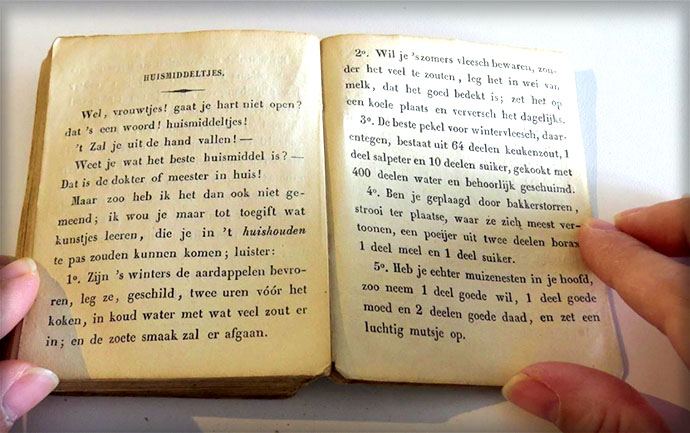 HUISMIDDELTJES.
Wel, vrouwtjes! gaat je hart niet open?
dat 's een woord! huismiddeltjes!
't Zal je uit de hand vallen! —
Weet je wat het beste huismiddel is? —
Dat is de dokter of meester in huis!
Maar zoo heb ik het dan ook niet ge-
meend; ik wou je maar tot toegift wat
kunstjes leeren, die je in 't huishouden
te pas zouden kunnen komen; luister:
1o. Zijn 's winters de aardappelen bevro-
ren, leg ze, geschild, twee uren vóór het
koken, in koud water met wat veel zout er
in; en de zoete smaak zal er afgaan.
2o. Wil je 'szomers vleesch bewaren, zon-
der het veel te zouten, leg het in wei van
melk, dat het goed bedekt is; zet het op
een koele plaats en ververscht het dagelijks.
3o. De beste pekel voor wintervleesch, daar-
entegen, bestaat uit 64 deelen keukenzout, 1
deel salpeter en 10 deelen suiker, gekookt met
400 deelen water en behoorlijk geschuimd.
4o. Ben je geplaagd door bakkerstorren,
strooi ter plaatse, waar ze zich meest ver-
toonen, een poeijer uit twee deelen borax
1 deel meel en 1 deel suiker.
5o. Heb je echter muizenesten in je hoofd,
zoo neem 1 deel goede wil, 1 deel goede
moed en 2 deelen goede daad, en zet een
luchtig mutsje op.